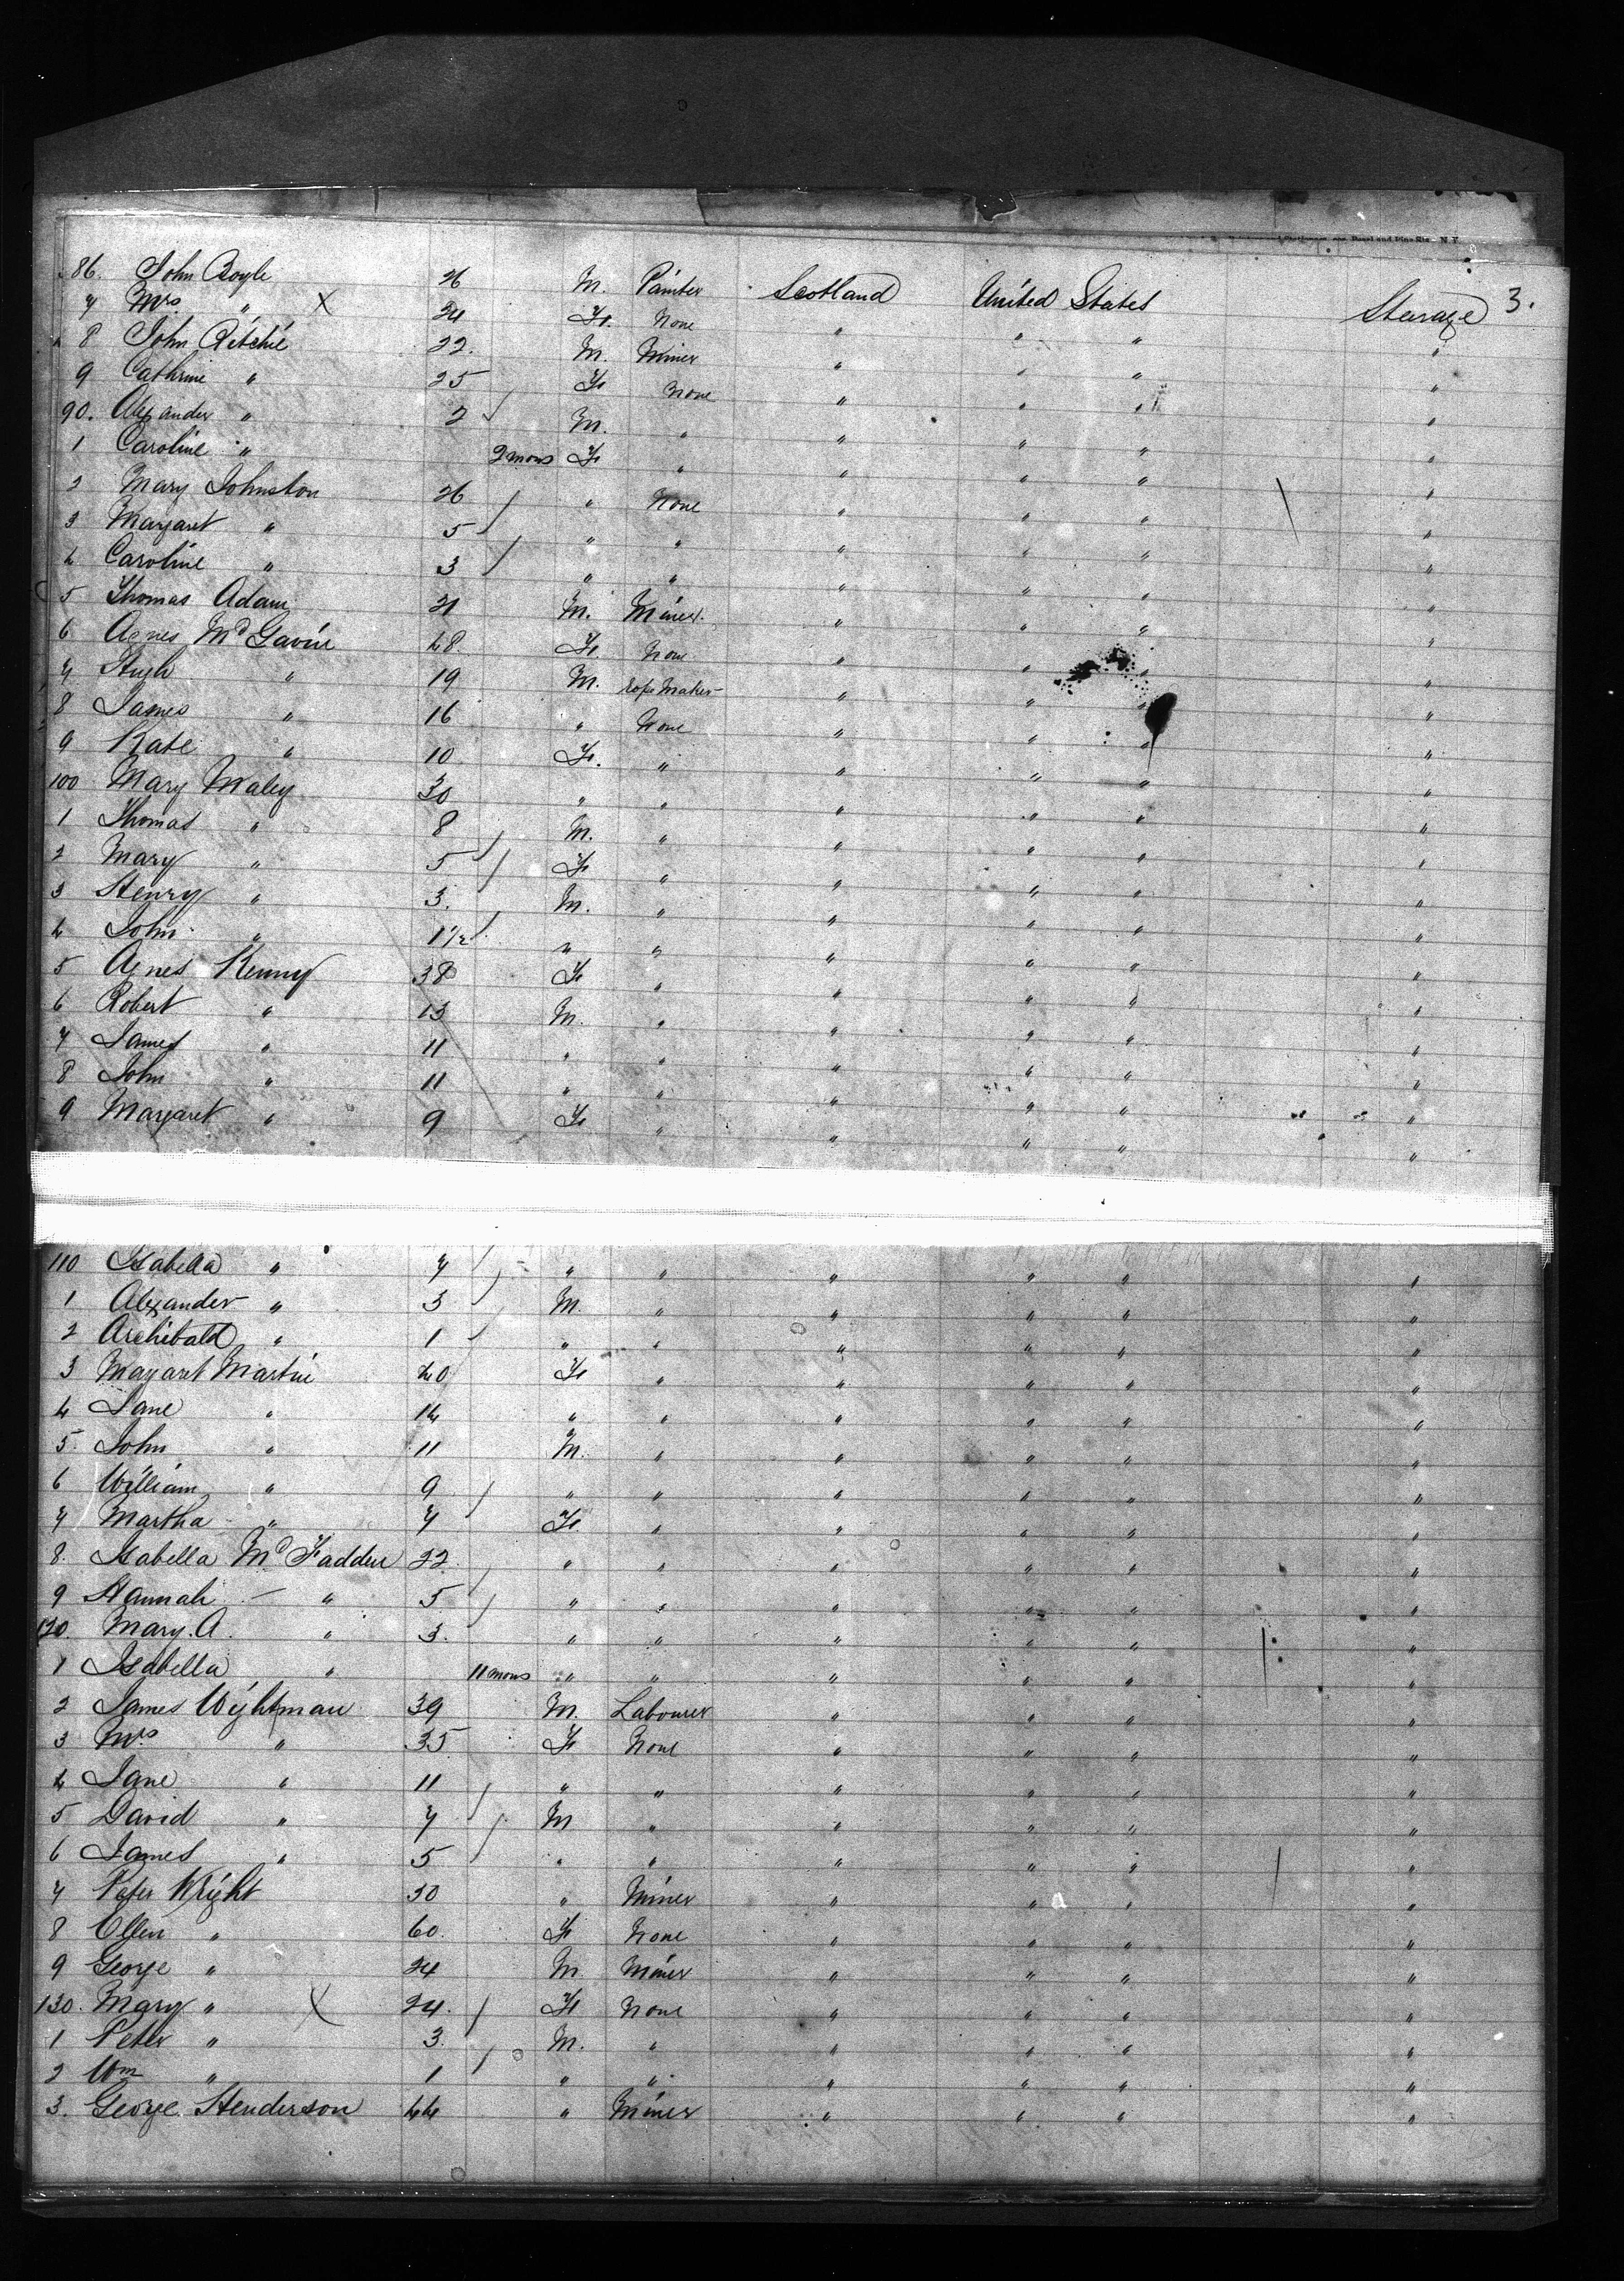 3.
86. John Boyle 26 M. Painter Scotland United States Steerage
7 Mrs " X 24 F. None " " " "
8 John Ritchie 22. M. Miner " " " "
9 Cathrine " 25 F None " " " "
90. Alexander " 2 M. " " " " "
1 Caroline " 2 mons F " " " " "
2 Mary Johnston 26 " None " " " "
3 Margaret " 5 " " " " " "
4 Caroline " 3 " " " " " "
5 Thomas Adam 21 M. Miner. " " " "
6 Agnes McGavin 48 F None " " " "
7 Hugh " 19 M. Rope Maker " " " "
8 James " 16 " None " " " "
9 Kate " 10 F. " " " " "
100 Mary Maley 30 " " " " " "
1 Thomas " 8 M. " " " " "
2 Mary " 5 F " " " " "
3 Henry " 3. M. " " " " "
4 John " 1 1/2 " " " " " "
5 Agnes Kenny 38 F " " " " "
6 Robert " 13 M. " " " " "
7 James " 11 " " " " " "
8 John " 11 " " " " " "
9 Margaret " 9 F " " " " "
110 Isabella " 7 " " " " " "
1 Alexander " 3 M. " " " " "
2 Archibald " 1 " " " " " "
3 Magaret Martin 40 F " " " " "
4 Jane " 14 " " " " " "
5 John " 11 M. " " " " "
6 William " 9 " " " " " "
7 Martha " 7 F. " " " " "
8. Isabella McFadden 22. " " " " " "
9 Hannah " 5 " " " " " "
120. Mary. A. " 3. " " " " " "
1 Isabella " 11 mons " " " " " "
2 James Wightman 39 M. Labourer " " " "
3 Mrs " 35 F None " " " "
4 Jane " 11 " " " " " "
5 David " 7 M " " " " "
6 James " 5 " " " " " "
7 Peter Wright 50 " Miner " " " "
8 Ellen " 60. F None " " " "
9 George " 24 M. Miner " " " "
130. Mary " X 24. F None " " " "
1 Peter " 3. M. " " " " "
2 Wm " 1 " " " " " "
3. George Henderson 44 " Miner " " " "